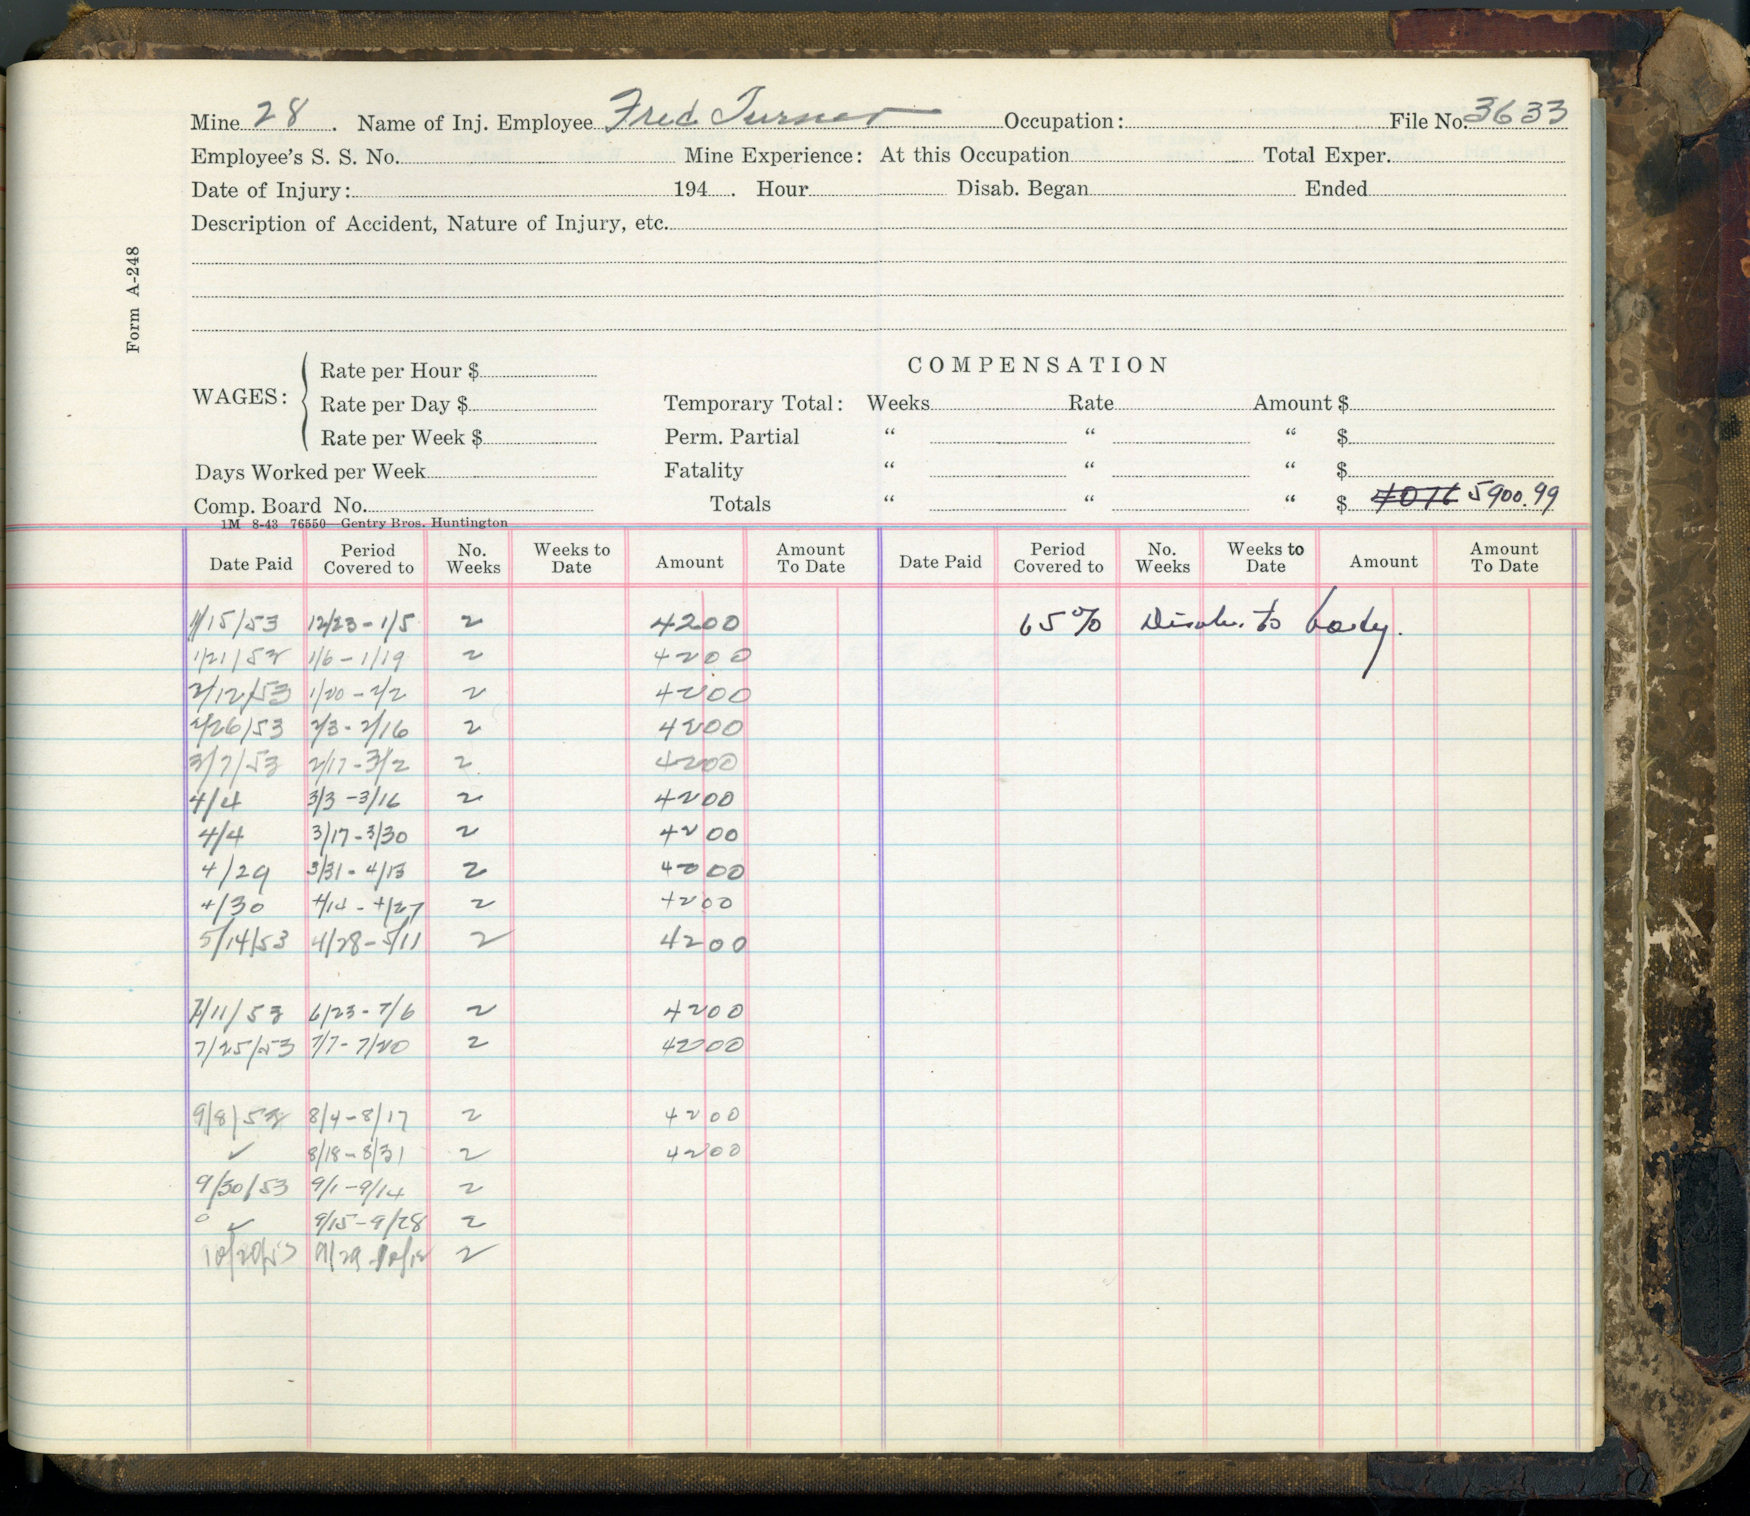 Mine 28. Name of Inj. Employee Fred Turner Occupation: File No. 3633
Employee's S. S. No. Mine Experience: At this Occupation Total Exper.
Date of Injury: 194 . Hour Disab. Began Ended
Description of Accident, Nature of Injury, etc.
Form A-248
WAGES: Rate per Hour $
Rate per Day $
Rate per Week $
Days Worked per Week
Comp. Board No.
1M 8-43 76550—Gentry Bros. Huntington
COMPENSATION
Temporary Total: Weeks Rate Amount $
Perm. Partial " " " $
Fatality " " " $
Totals " " " $ 4076 5900.99
Date Paid Period Covered to No. Weeks Weeks to Date Amount Amount To Date Date Paid Period Covered to No. Weeks Weeks to Date Amount Amount To Date
1/15/53 12/23-1/5 2 4200 65% Disab. to body.
1/21/53 1/6-1/19 2 4200
2/12/53 1/20-2/2 2 4200
2/26/53 2/3-2/16 2 4200
3/7/53 2/17-3/2 2 4200
4/4 3/3-3/16 2 4200
4/4 3/17-3/30 2 4200
4/29 3/31-4/13 2 4200
4/30 4/14-4/27 2 4200
5/14/53 4/28-5/11 2 4200
7/11/53 6/23-7/6 2 4200
7/25/53 7/7-7/20 2 4200
9/8/53 8/4-8/17 2 4200
✓ 8/18-8/31 2 4200
9/30/53 9/1-9/14 2
✓ 9/15-9/28 2
10/20/53 9/29-10/12 2